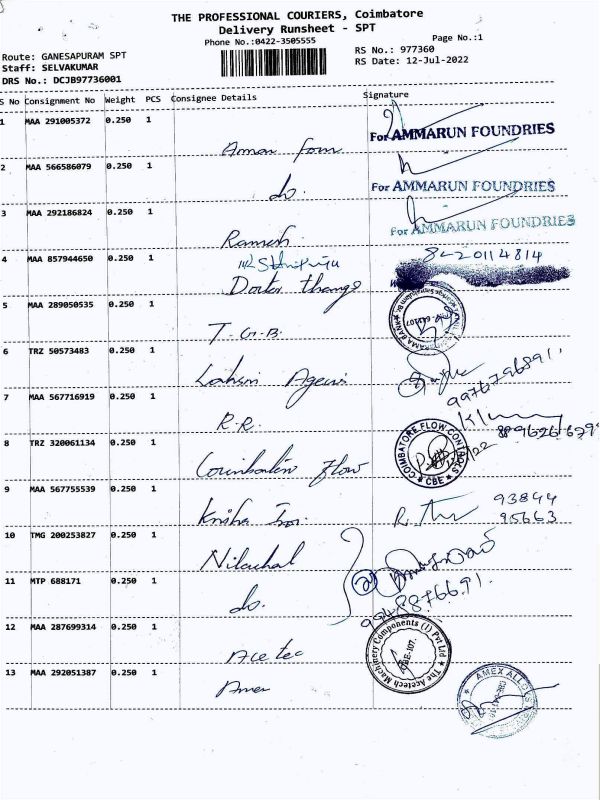 THE PROFESSIONAL COURIERS, Coimbatore
Delivery Runsheet - SPT
Phone No.:0422-3505555
Page No.:1
Route: GANESAPURAM SPT
RS No.: 977360
Staff: SELVAKUMAR
RS Date: 12-Jul-2022
DRS No.: DCJB97736001
S No Consignment No Weight PCS Consignee Details Signature
1 MAA 291005372 0.250 1
For AMMARUN FOUNDRIES
2 MAA 566586079 0.250 1
do
For AMMARUN FOUNDRIES
3 MAA 292186824 0.250 1
Ramesh
For AMMARUN FOUNDRIES
4 MAA 857944650 0.250 1
8420114814
Doctor
5 MAA 289050535 0.250 1
T.G.B.
6 TRZ 50573483 0.250 1
9976796891
7 MAA 567716919 0.250 1
R.R.
8 TRZ 320061134 0.250 1
COIMBATORE FLOW
CBE
Flow
9 MAA 567755539 0.250 1
93844
95663
10 TMG 200253827 0.250 1
Nilachal
11 MTP 688171 0.250 1
do.
12 MAA 287699314 0.250 1
Ace tec
The Acetech Machinery Components (I) Pvt Ltd
CBE-107.
13 MAA 292051387 0.250 1
Amex
AMEX ALLOYS